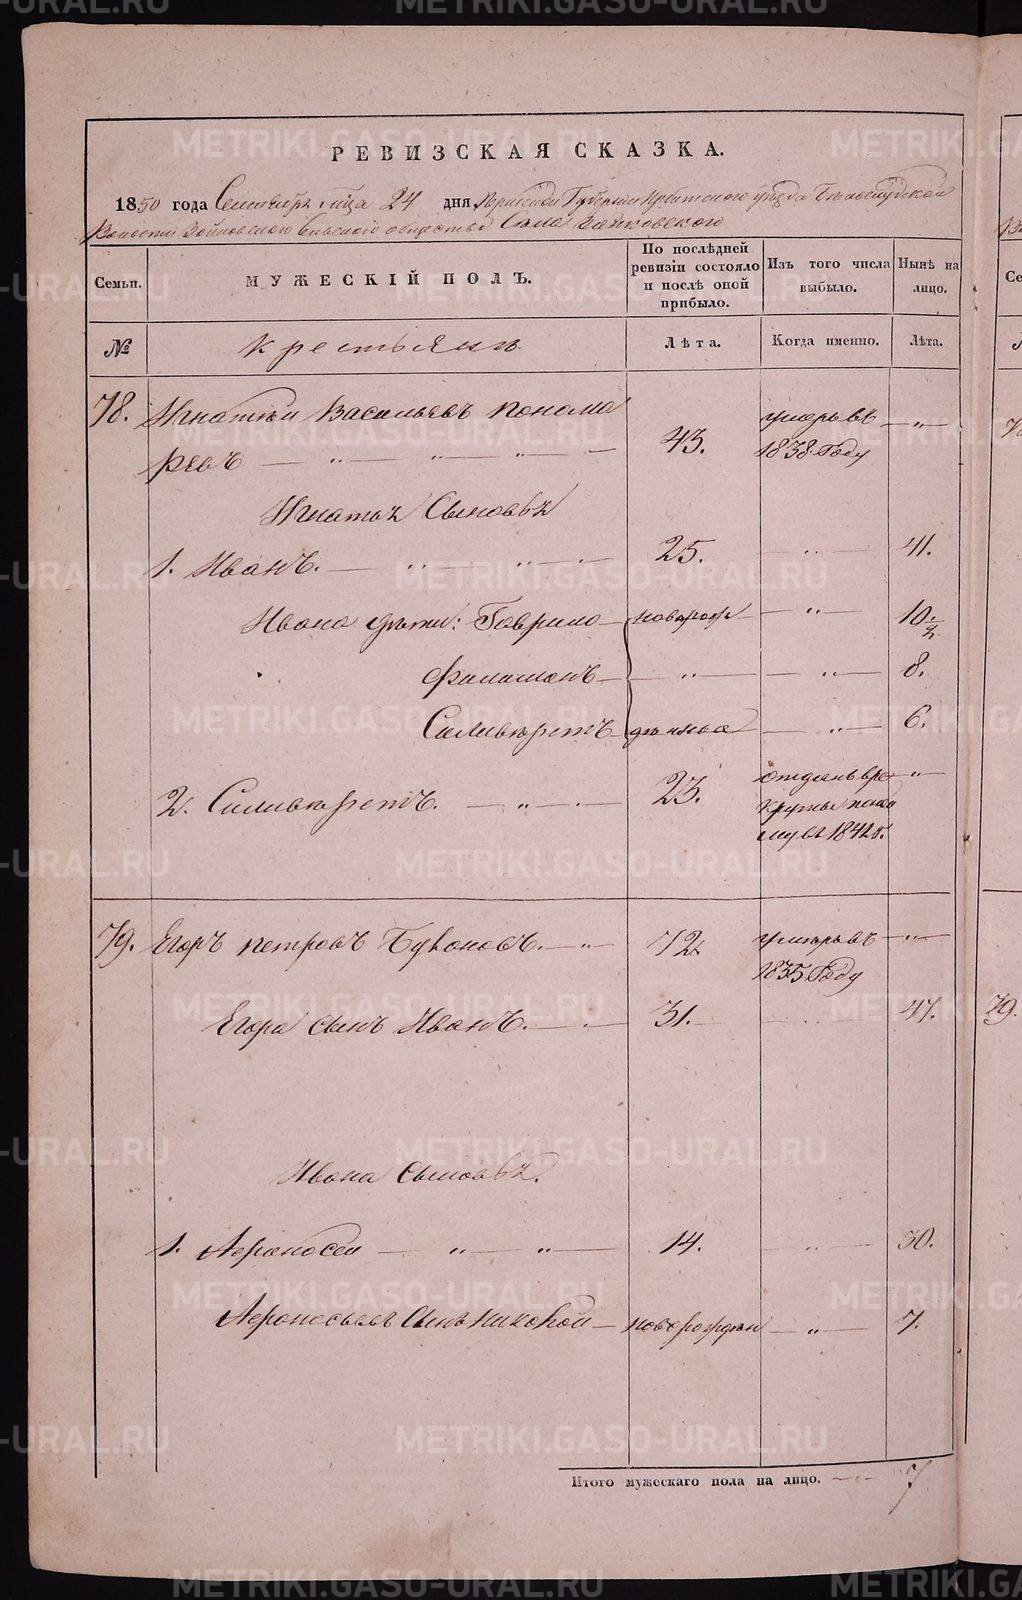 РЕВИЗСКАЯ СКАЗКА.
1850 года Сентября м-ца 24 дня, Пермской Губернии Ирбитского уезда Белослудской
Волости Зайковского Сельского общества Села Зайковского
Семьи.
МУЖЕСКІЙ ПОЛЪ.
По послѣдней ревизіи состояло и послѣ оной прибыло.
Изъ того числа выбыло.
Нынѣ на лицо.
№
крестьянъ
Лѣта.
Когда именно.
Лѣта.
78. Игнатѣй Васильевъ Понома
ревъ — " — " — " — 43. умеръ въ 1838 Году — " —
Игнатья Сыновья
1. Иванъ. — " — " — 25. — " — 41.
Ивана дѣти: Гаврило — новорож — " — 10 1/2.
Филимонъ — " — " — 8.
Селивѣрстъ — денныя — " — 6.
2. Селивѣрстъ. — " — 23. отданъ въ ре
круты
въ 1842 г. — " —
79. Егоръ петровъ Буконовъ. — " 72. умеръ въ
1835 Году — " —
Егора сынъ Иванъ. — 31. — " — 47.
Ивана Сыновья.
1. Афонасей — " — " — 14. — " — 30.
Афонасьевъ Сынъ Николай — новорожден — " — 7.
Итого мужескаго пола на лицо. — 7
METRIKI.GASO-URAL.RU